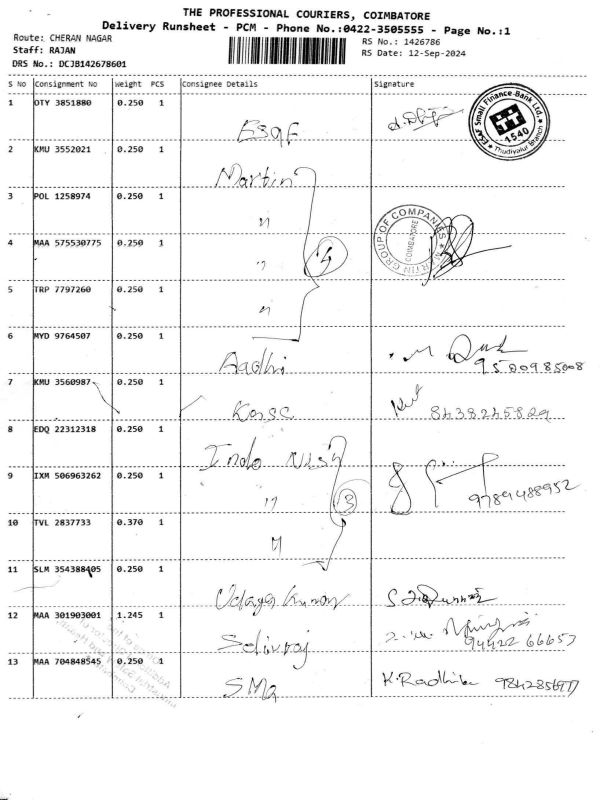 THE PROFESSIONAL COURIERS, COIMBATORE
Delivery Runsheet - PCM - Phone No.:0422-3505555 - Page No.:1
Route: CHERAN NAGAR
RS No.: 1426786
Staff: RAJAN
RS Date: 12-Sep-2024
DRS No.: DCJB142678601
S No Consignment No Weight PCS Consignee Details Signature
1 OTY 3851880 0.250 1 Esaf
ESAF Small Finance Bank Ltd. 1540 Thudiyalur Branch
2 KMU 3552021 0.250 1 Martin
3 POL 1258974 0.250 1 "
4 MAA 575530775 0.250 1 " 4
MARTIN GROUP OF COMPANIES COIMBATORE
5 TRP 7797260 0.250 1 "
6 MYD 9764507 0.250 1 Aadhi 9500985008
7 KMU 3560987 0.250 1 8438245829
8 EDQ 22312318 0.250 1 Indo
9 IXM 506963262 0.250 1 " 3 9789488952
10 TVL 2837733 0.370 1 "
11 SLM 354388405 0.250 1 Udaya Kumar
12 MAA 301903001 1.245 1 Selivraj 94422 66657
13 MAA 704848545 0.250 1 SMa K.Radhika